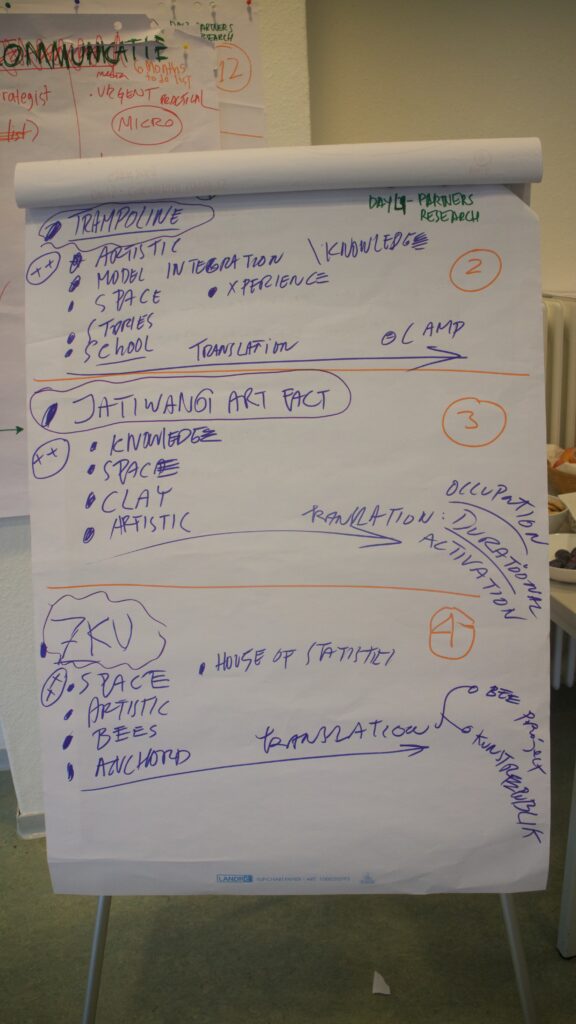 OMMUNICATIE
PARTNERS
RESEARCH
media 6 MONTHS
to do list
rategist
• URGENT PRACTICAL
MICRO
12
DAY 4 - PARTNERS
RESEARCH
• TRAMPOLINE
++ • ARTISTIC
• MODEL INTEGRATION \ KNOWLEDGE
2
• SPACE • XPERIENCE
• STORIES
• SCHOOL TRANSLATION CAMP
• JATIWANGI ART FACT
3
++ • KNOWLEDGE
• SPACE
• CLAY
• ARTISTIC
TRANSLATION: OCCUPATION
DURATIONAL
ACTIVATION
• ZKU
4
++ • SPACE • HOUSE OF STATISTICS
• ARTISTIC
• BEES
• ANCHORD TRANSLATION
BEE PROJECT
KUNSTREPUBLIK
LANDRÉ